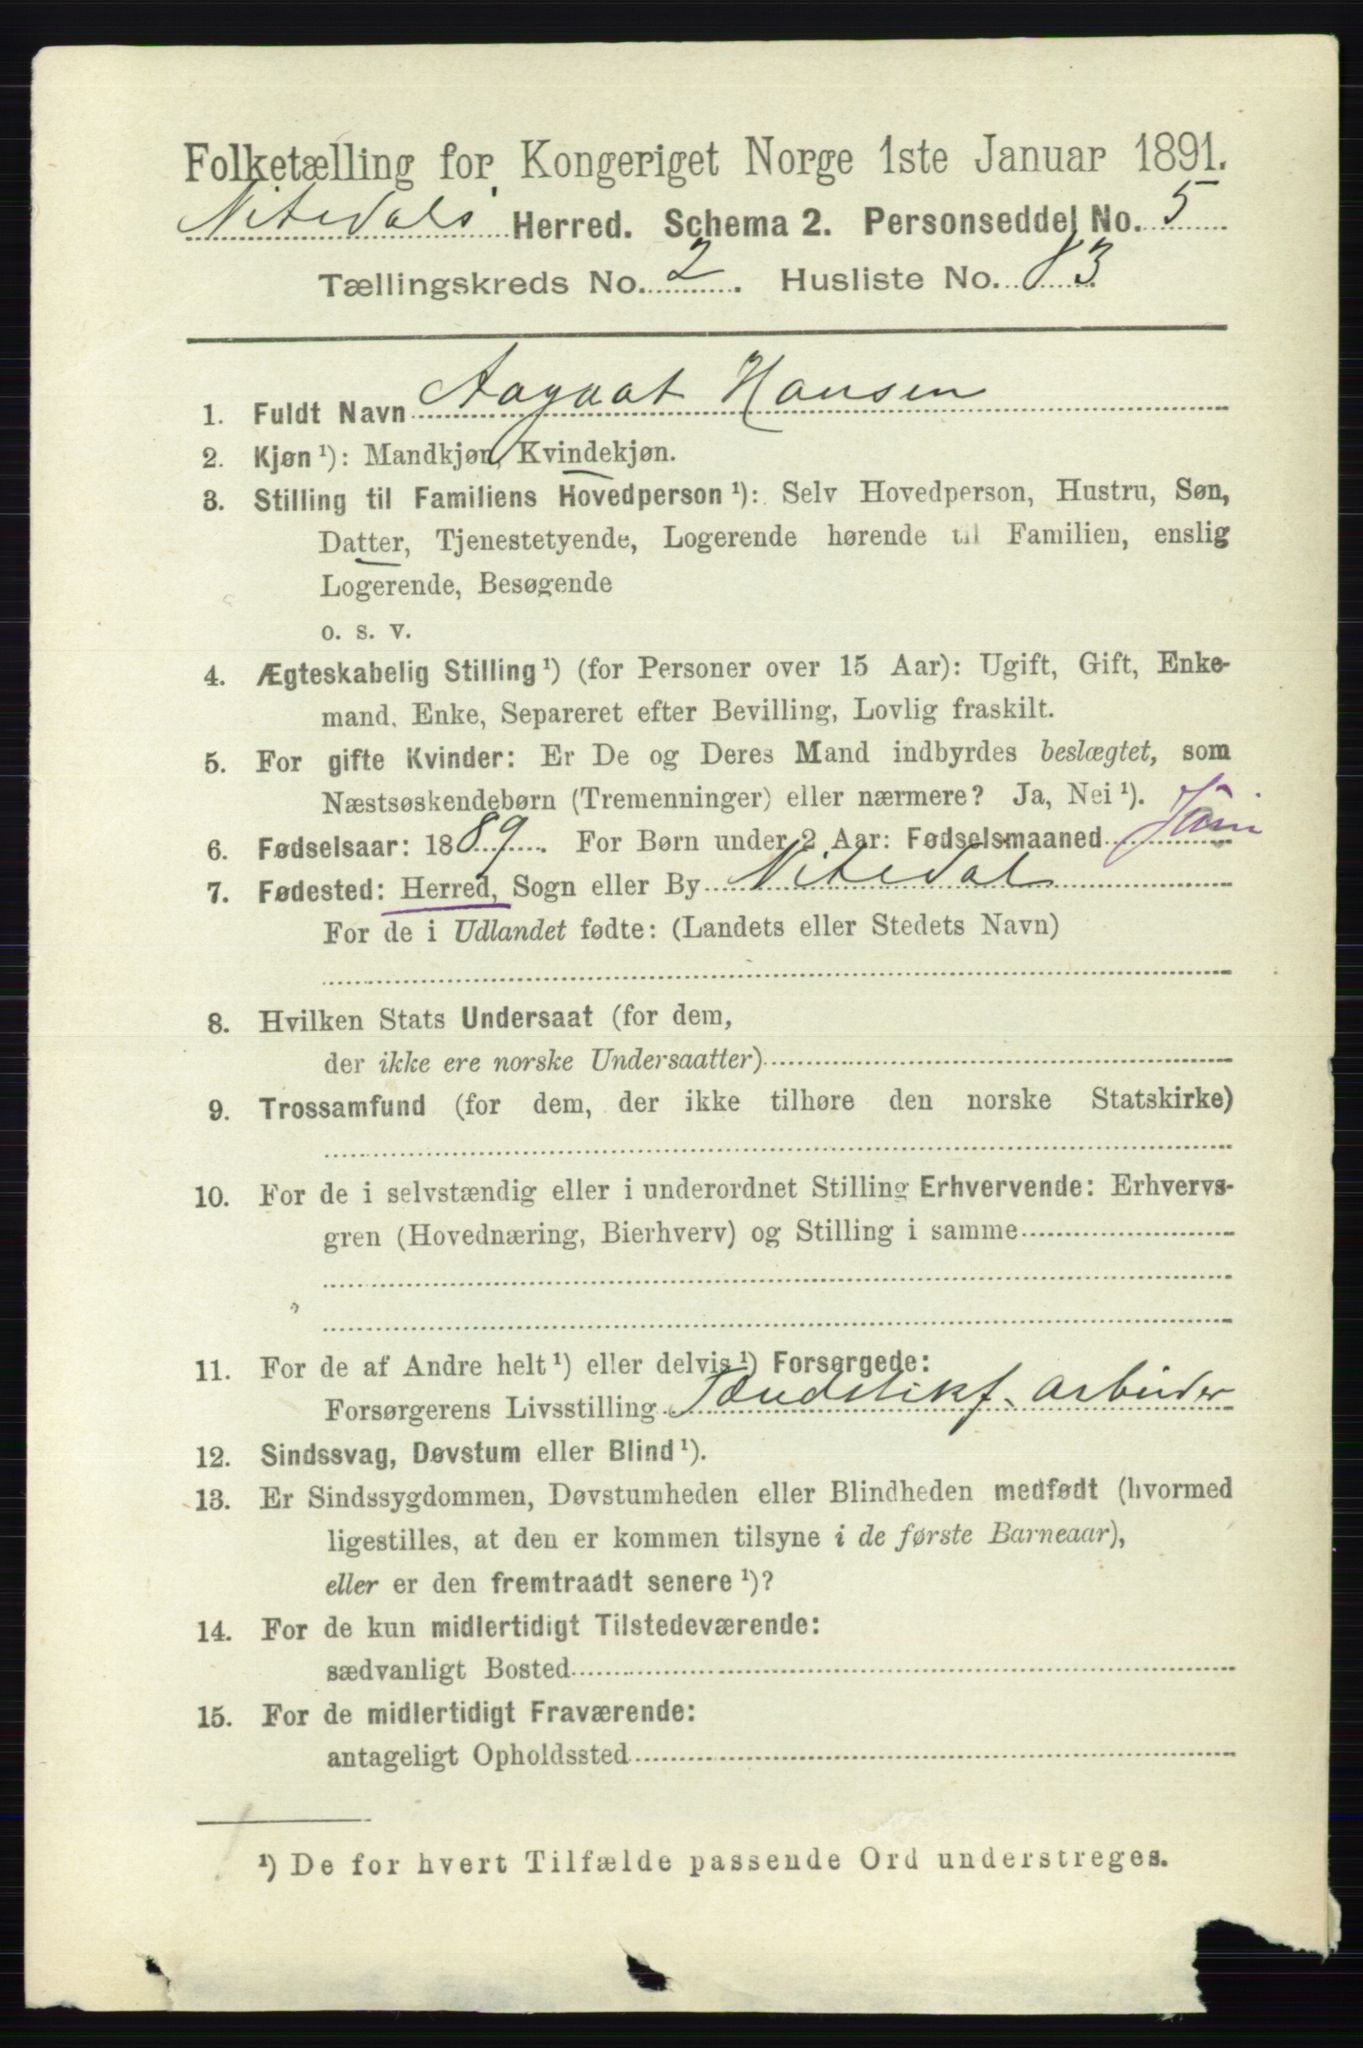 Folketælling for Kongeriget Norge 1ste Januar 1891.
Nitedals Herred. Schema 2. Personseddel No. 5
Tællingskreds No. 2. Husliste No. 83
1. Fuldt Navn Aagaat Hansen
2. Kjøn ¹): Mandkjøn, Kvindekjøn.
3. Stilling til Familiens Hovedperson ¹): Selv Hovedperson, Hustru, Søn,
Datter, Tjenestetyende, Logerende hørende til Familien, enslig
Logerende, Besøgende
o. s. v.
4. Ægteskabelig Stilling ¹) (for Personer over 15 Aar): Ugift, Gift, Enke-
mand, Enke, Separeret efter Bevilling, Lovlig fraskilt.
5. For gifte Kvinder: Er De og Deres Mand indbyrdes beslægtet, som
Næstsøskendebørn (Tremenninger) eller nærmere? Ja, Nei ¹).
6. Fødselsaar: 1889. For Børn under 2 Aar: Fødselsmaaned
7. Fødested: Herred, Sogn eller By Nitedal
For de i Udlandet fødte: (Landets eller Stedets Navn)
8. Hvilken Stats Undersaat (for dem,
der ikke ere norske Undersaatter)
9. Trossamfund (for dem, der ikke tilhøre den norske Statskirke)
10. For de i selvstændig eller i underordnet Stilling Erhvervende: Erhvervs-
gren (Hovednæring, Bierhverv) og Stilling i samme
11. For de af Andre helt ¹) eller delvis ¹) Forsørgede:
Forsørgerens Livsstilling Tændstikf. arbeider
12. Sindssvag, Døvstum eller Blind ¹).
13. Er Sindssygdommen, Døvstumheden eller Blindheden medfødt (hvormed
ligestilles, at den er kommen tilsyne i de første Barneaar),
eller er den fremtraadt senere ¹)?
14. For de kun midlertidigt Tilstedeværende:
sædvanligt Bosted
15. For de midlertidigt Fraværende:
antageligt Opholdssted
¹) De for hvert Tilfælde passende Ord understreges.